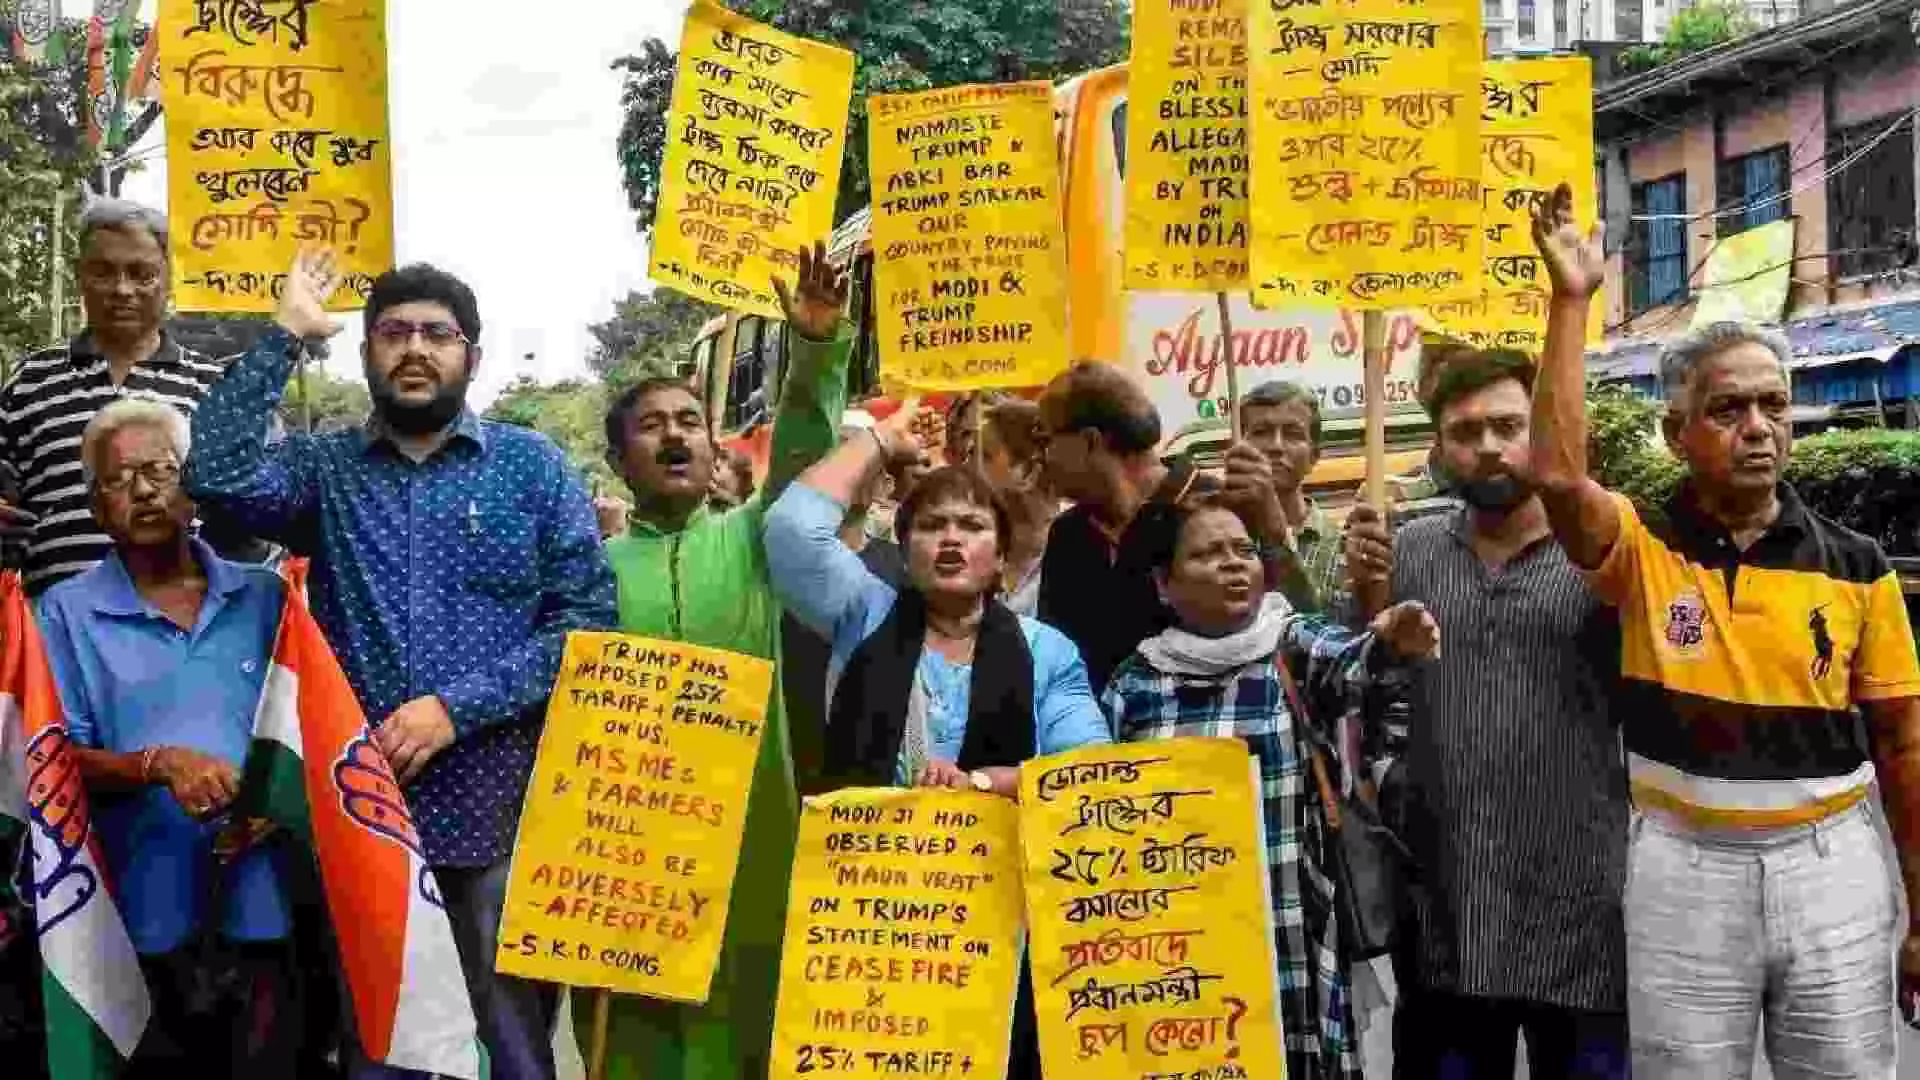 ট্রাম্পের
বিরুদ্ধে
আর কবে মুখ
খুলবেন
মোদি জী?
ভারত
কার সাথে
ব্যবসা করবে?
ট্রাম্প ঠিক করে
দেবে নাকি?
NAMASTE
TRUMP &
ABKI BAR
TRUMP SARKAR
OUR
COUNTRY PAYING
THE PRICE
FOR MODI &
TRUMP
FREINDSHIP.
S.K.D. CONG
MODI
REMA
SILE
ON TH
BLESSL
ALLEGA
MAD
BY TRU
ON
INDIA
-S.K.D.CON
ট্রাম্প সরকার
- মোদি
"ভারতীয় পন্যের
ওপর ২৫%
শুল্ক +
- ডোনাল্ড ট্রাম্প
Ayaan
TRUMP HAS
IMPOSED 25%
TARIFF + PENALTY
ON US.
MSMEs
& FARMERS
WILL
ALSO BE
ADVERSELY
-AFFECTED.
-S.K.D. CONG.
MODI JI HAD
OBSERVED A
"MAUN VRAT"
ON TRUMP'S
STATEMENT ON
CEASEFIRE
&
IMPOSED
25% TARIFF +
ডোনাল্ড
ট্রাম্পের
২৫% ট্যারিফ
বসানোর
প্রতিবাদে
প্রধানমন্ত্রী
চুপ কেনো?